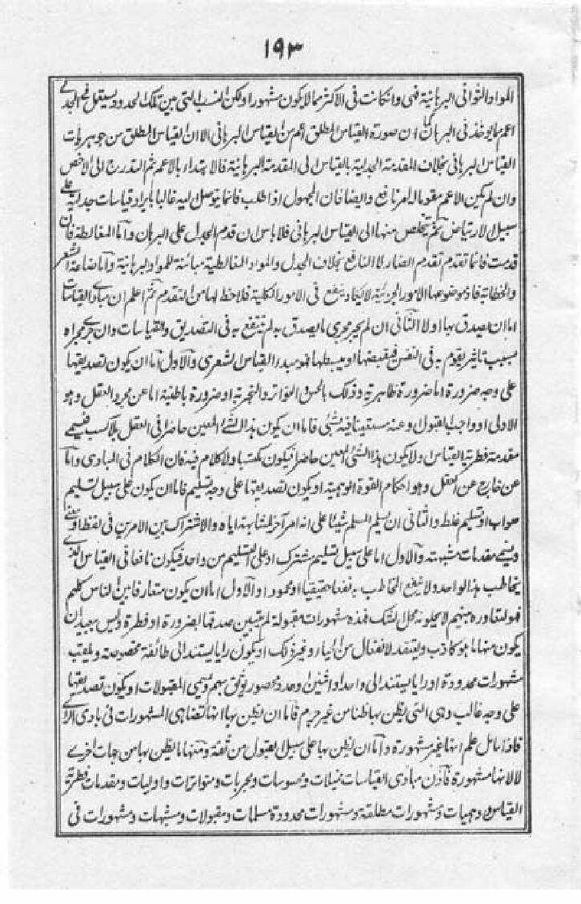 ١٩٣
المواد الثوانى البرهانية فهى وان كانت فى الاكثر مما لا يكون مشهورا ولكن النسب التى بين تلك الحدود
اعم مما يوخذ فى البرهان كما ان صورة القياس المطلق اعم من القياس البرهانى الا ان القياس المطلق من جوهريات
القياس البرهانى بخلاف المقدمة الجدلية بالقياس الى المقدمة البرهانية فالابتداء بالاعم ثم التدرج الى الاخص
وان لم يكن الاعم مقوما لامر نافع وايضا فان المجهول اذا طلب فانما يتوصل اليه غالبا بايراد قياسات جدلية على
سبيل الارتياض ثم يتخلص منها الى القياس البرهانى فلا باس ان قدم الجدل على البرهان واما المغالطة فان
قدمت فانما تقدم تقدم الضار لا النافع بخلاف الجدل والمواد المغالطية مبائنة للمواد البرهانية واما صناعة الشعر
والخطابة فاذ موضوعها الامور الجزئية لا تكاد ينفع فى الامور الكلية فلاحظ لها من التقدم ثم اعلم ان مبادى القياسات
اما ان يصدق بها اولا والثانى ان لم يجر مجرى ما يصدق به لم ينتفع به فى التصديق والقياسات وان جرى مجراه
بسبب تاثير يقوم به فى النفس فيقبضها او يبسطها فهو مبدء القياس الشعرى والاول اما ان يكون تصديقها
على وجه ضرورة اما ضرورة ظاهرية وذلك بالحس او التواتر والتجربة او ضرورة باطنية اما عن مجرد العقل وهو
الاولى او واجب القبول وعنه مستعينا فيه بشئ فاما ان يكون هذا الشئ المعين حاضرا فى العقل بلا كسب فيسمى
مقدمة فطرية القياس ولا يكون هذا الشئ المعين حاضرا فيكون مكتسبا ولا كلام فيه فان الكلام فى المبادى واما
عن خارج عن العقل وهو احكام القوة الوهمية او يكون تصديقها على وجه تسليم فاما ان يكون على سبيل تسليم
صواب او تسليم غلط والثانى ان يسلم المسلم شيئا على انه امر آخر لمشابهته اياه والاشتراك بين الامرين فى لفظ او معنى
ويسمى مقدمات مشبهة والاول اما على سبيل تسليم مشترك او على التسليم من واحد فيكون نافعا فى القياس الذى
يخاطب به ذا الواحد ولا ينتفع المخاطب به نفعا حقيقيا او محمودا والاول اما ان يكون متعارفا بين الناس كلهم
فهو لتعاوره بينهم لا يحلونه محل الشك فهذه مشهورات مقبولة لم يتبين صدقها بضرورة او فطرة وليس ببعيد ان
يكون منها ما هو كاذب ويعتقد لانفعال من الحياء وغير ذلك او يكون رايا يستند الى طائفة مخصوصة ويلقب
مشهورات محدودة او رايا يستند الى واحد او اثنين او عدد محصور يوثق بهم ويسمى المقبولات او يكون تصديقها
على وجه غالب وهى التى يظن بها ظنا من غير جزم فاما ان يظن بها انها تضاهى المشهورات فى بادى الراى
فاذا تامل علم انها غير مشهورة واما ان يظن بها على سبيل القبول من ثقة ومنها ما يظن بها من جهات اخرى
لا لانها مشهورة فاذن مبادى القياسات مخيلات ومحسوسات ومجربات ومتواترات واوليات ومقدمات فطرية
القياس ووهميات ومشهورات مطلقة ومشهورات محدودة ومسلمات ومقبولات ومشبهات ومشهورات فى